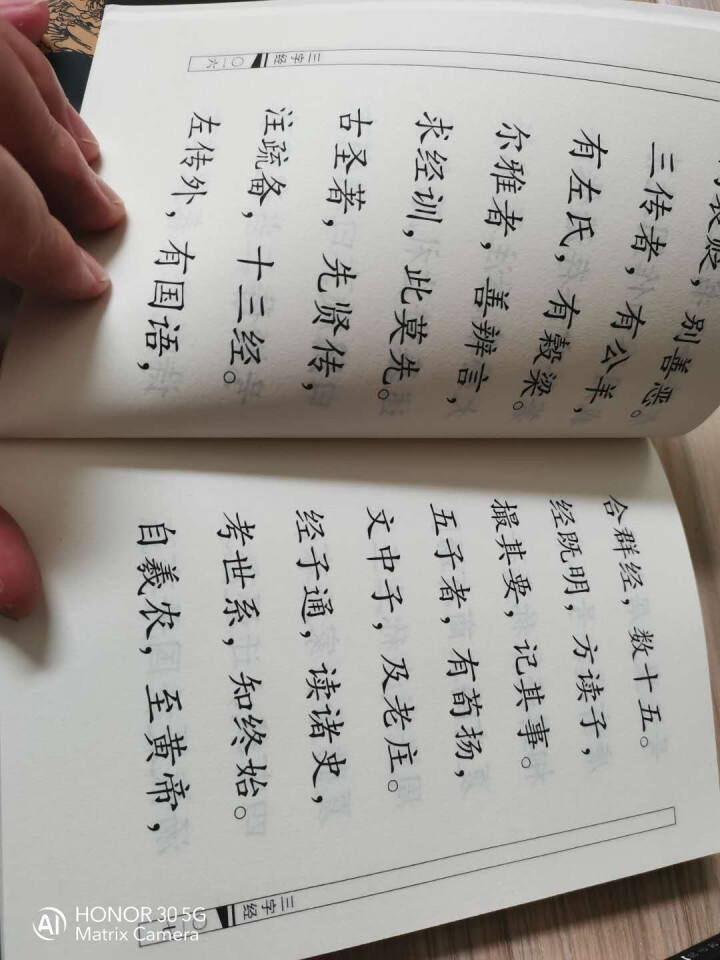 三字经
〇一六
褒贬，别善恶。
三传者，有公羊，
有左氏，有穀梁。
尔雅者，善辨言，
求经训，此莫先。
古圣著，先贤传，
注疏备，十三经。
左传外，有国语，
合群经，数十五。
经既明，方读子，
撮其要，记其事。
五子者，有荀扬，
文中子，及老庄。
经子通，读诸史，
考世系，知终始。
自羲农，至黄帝，
三字经
HONOR 30 5G
AI Matrix Camera